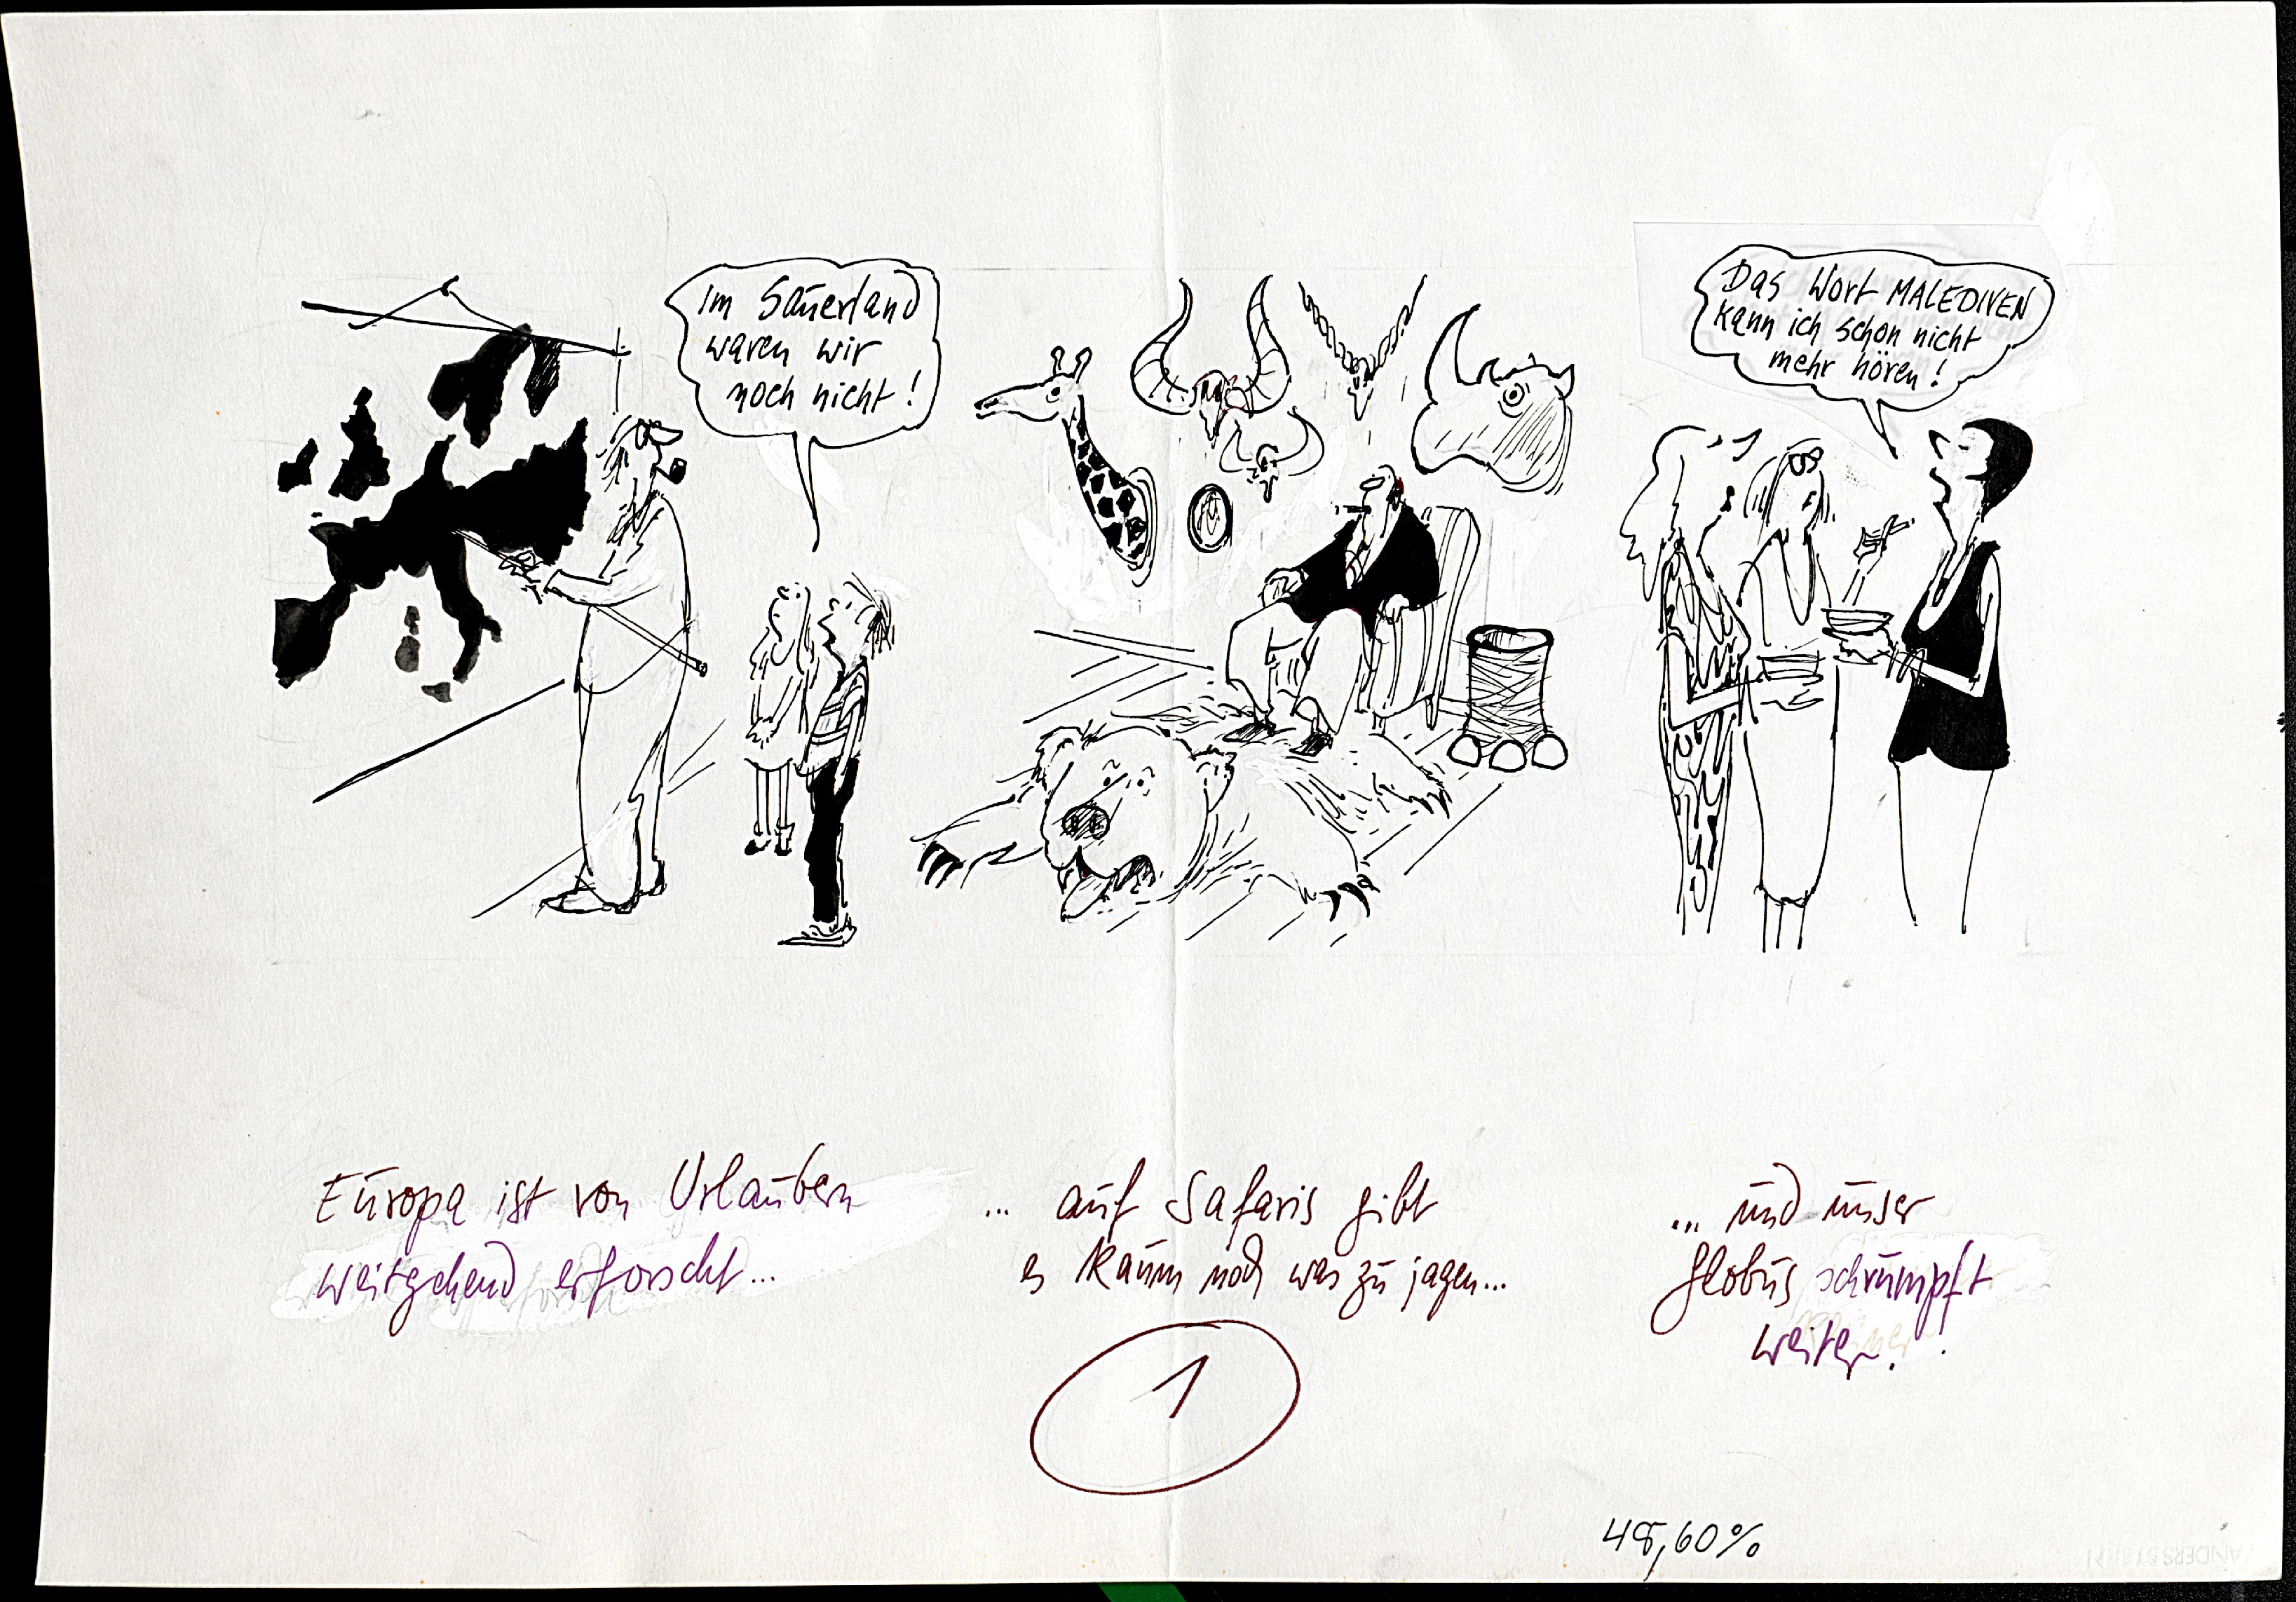 Im Sauerland
waren wir
noch nicht!
Das Wort MALEDIVEN
kann ich schon nicht
mehr hören!
Europa ist von Urlaubern
weitgehend erforscht...
... auf Safaris gibt
es kaum noch was zu jagen...
... und unser
Globus schrumpft
weiter!
1
48,60%